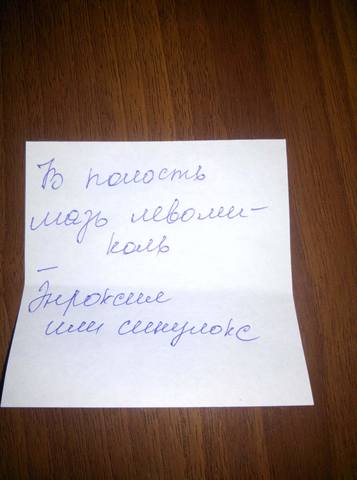 В полость
мазь левоми-
коль
–
Энроксил
или синулокс